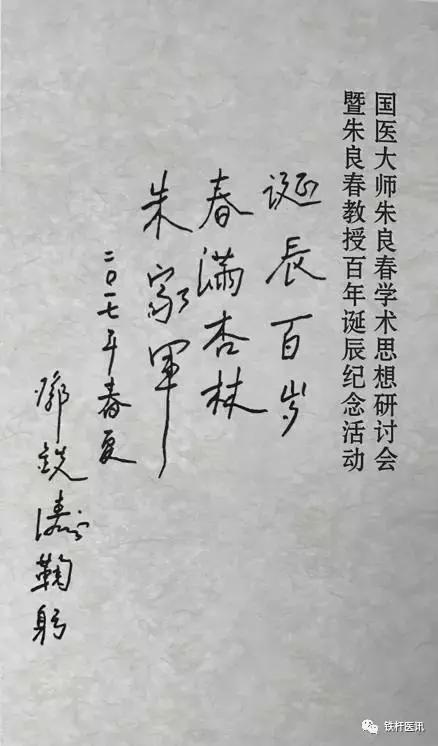 国医大师朱良春学术思想研讨会
暨朱良春教授百年诞辰纪念活动
诞辰百岁
春满杏林
朱家軍
二〇一七年春夏
鄭鋭濤鞠躬
铁杆医讯